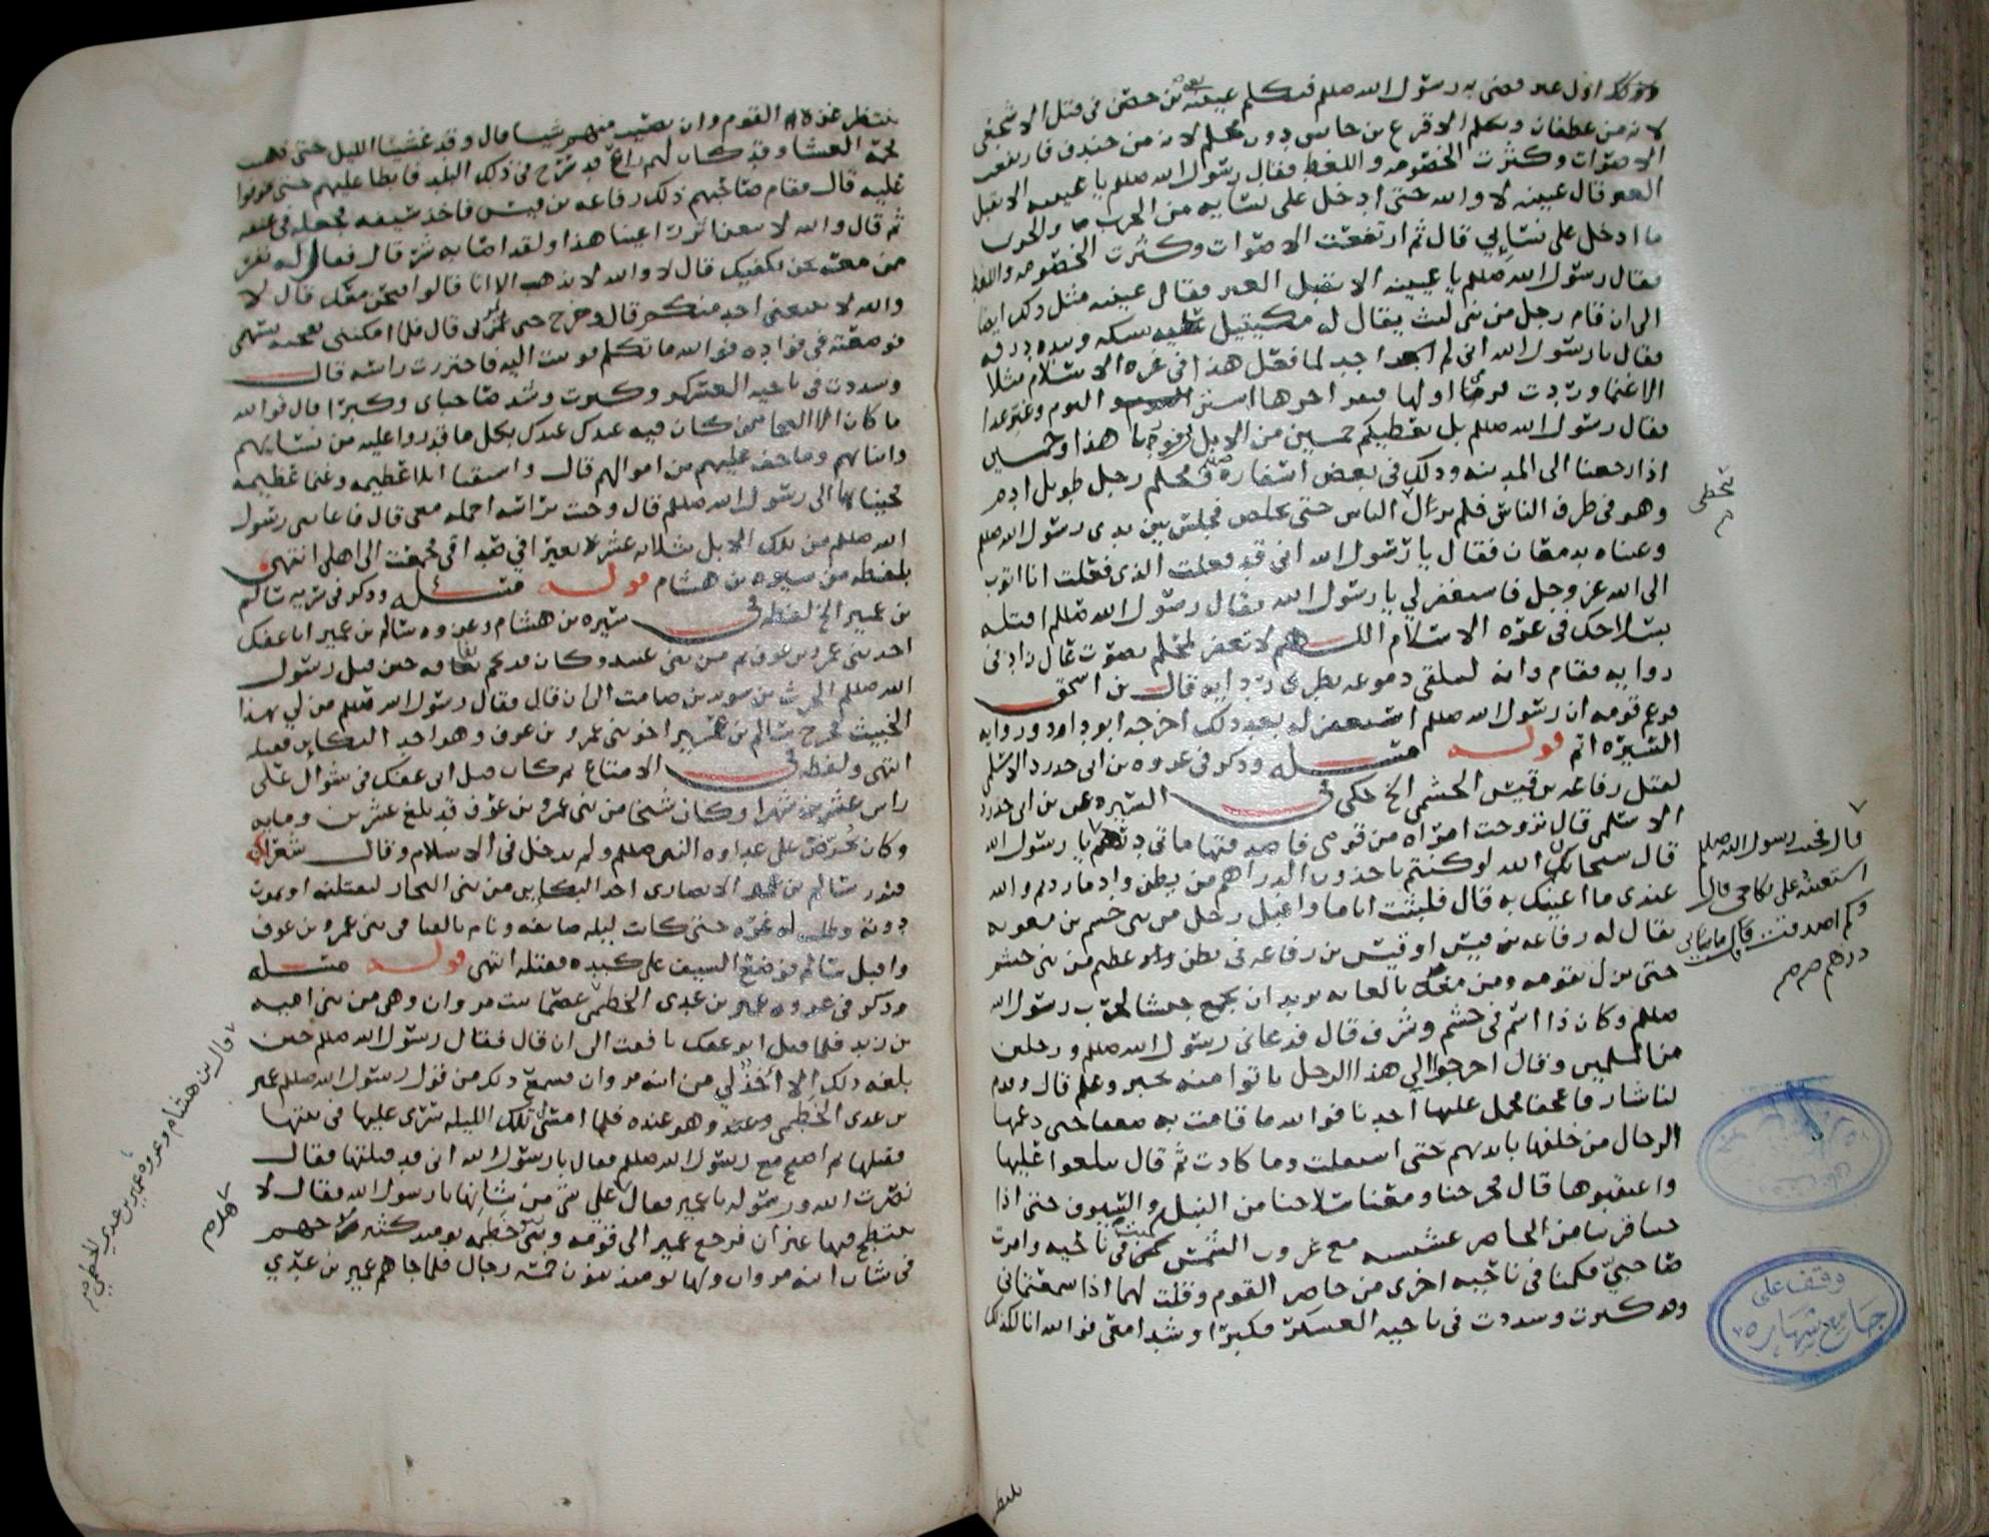 وذلك اول غير قضى به رسول الله صللم فتكلم عيينه بن حصن في قتل الاشجعي
لانه من غطفان وتكلم الاقرع بن حابس دون محلم لانه من خندف فارتفعت
الاصوات وكثرت الخصومه واللغط فقال رسول الله صللم يا عيينه الا تقبل
الغير فقال عيينه لا والله حتى ادخل على نسايه من الحرب والحزن
ما ادخل على نسائي قال ثم ارتفعت الاصوات وكثرت الخصومه واللغط
فقال رسول الله صللم يا عيينه الا تقبل الغير فقال عيينه مثل ذلك ايضا
الى ان قام رجل من بني ليث يقال له مكيتيل عليه سكه وبيده درقه
فقال يا رسول الله اني لم اجد لما فعل هذا في غره الاسلام مثلا
الا غنما وردت فرمي اولها فنفر اخرها اسنن اليوم وغير غدا
فقال رسول الله صللم بل نعطيكم خمسين من الابل في فورنا هذا وخمسين
اذا رجعنا الى المدينه وذلك في بعض اسفاره ومحلم رجل طويل ادم
وهو في طرف الناس فلم يزال الناس حتى تخلص فجلس بين يدي رسول الله صللم
وعيناه تدمعان فقال يا رسول الله اني قد فعلت الذي فعلت انا اتوب
الى الله عز وجل فاستغفر لي يا رسول الله فقال رسول الله صللم اقتله
بسلاحك في غره الاسلام اللهم لا تغفر لمحلم بصوت عال زاد في
روايه فقام وانه ليتلقى دموعه بطرف ردايه قال بن اسحق
فزعم قومه ان رسول الله صللم استغفر له بعد ذلك اخرجه ابو داود وروايه
السيره اتم قوله مسئله وذكر في غزوه بن ابي حدرد الاسلمي
لقتل رفاعه بن قيس الجشمي الخ حكى في السيره عن بن ابي حدرد
الاسلمي قال تزوجت امراه من قومي فاصدقتها مائتي درهم يا رسول الله
قال سبحان الله لو كنتم تاخذون الدراهم من بطن واد ما زدتم والله
عندي ما اعينك به قال فلبثت اياما واقبل رجل من بني جشم بن معويه
يقال له رفاعه بن قيس او قيس بن رفاعه في بطن عظيم من بني جشم
حتى نزل بقومه ومن معه بالغابه يريد ان يجمع جيشا لحرب رسول الله
صللم وكان ذا اسم في جشم وشرف قال فدعاني رسول الله صللم ورجلين
من المسلمين وقال اخرجوا الى هذا الرجل حتى تاتوا منه بخبر وعلم قال وقدم
لنا شارفا عجفا فحمل عليها احدنا فوالله ما قامت به ضعفا حتى دعمها
الرجال من خلفها بايديهم حتى استقلت وما كادت ثم قال تبلغوا عليها
واعتقبوها قال فخرجنا ومعنا سلاحنا من النبل والسيوف حتى اذا
جينا قريبا من الحاضر عشيه مع غروب الشمس كمنت في ناحيه وامرت
صاحبي فكمنا في ناحيه اخرى من حاضر القوم وقلت لهما اذا سمعتماني
وقد كبرت وشددت في ناحيه العسكر فكبرا وشدا معي فوالله انا لكذلك
تخطى
قال فجئت رسول الله صللم
استعينه على نكاحي قال
وكم اصدقت قال مائتي
درهم صح
وقف على
جامع شهاره
ننتظر غره القوم وان نصيب منهم شيا قال وقد غشينا الليل حتى ذهبت
فحمة العشا وقد كان لهم راع قد سرح في ذلك البلد فابطا عليهم حتى تخوفوا
عليه قال فقام صاحبهم ذلك رفاعه بن قيس فاخذ سيفه فجعله في عنقه
ثم قال والله لاتبعن اثر راعينا هذا ولقد اصابه شر قال فقال له نفر
ممن معه نحن نكفيك قال لا والله لا يذهب الا انا قالوا فنحن معك قال لا
والله لا يتبعني احد منكم قال وخرج حتى مر بي قال فلما امكنني نفحته بسهمي
فوضعته في فواده فوالله ما تكلم فوثبت اليه فاحتززت راسه قال
وشددت في ناحيه العسكر وكبرت وشد صاحباي وكبرا قال فوالله
ما كان الا النجا ممن كان فيه عندك عندك بكل ما قدروا عليه من نسايهم
وابنايهم وما خف عليهم من اموالهم قال واستقنا ابلا عظيمه وغنما عظيمه
فجينا بها الى رسول الله صللم قال وجئت براسه احمله معي قال فاعانني رسول
الله صللم من تلك الابل بثلاثه عشر بعيرا في صداقي فجمعت الى اهلي انتهى
بلفظه من سيره بن هشام قوله مسئله وذكر في سريه سالم
بن عمير الخ لفظه في سيره بن هشام وغزوه سالم بن عمير ابا عفك
احد بني عمرو بن عوف ثم من بني عبيده وكان قد نجم نفاقه حين قتل رسول
الله صللم الحرث بن سويد بن صامت الى ان قال فقال رسول الله صللم من لي بهذا
الخبيث فخرج سالم بن عمير اخو بني عمرو بن عوف وهو احد البكاين فقتله
انتهى ولفظه في الامتاع ثم كان قتل ابي عفك في شوال على
راس عشرين شهرا وكان شيخا من بني عمرو بن عوف قد بلغ عشرين ومايه
وكان يحرض على عداوه النبي صللم ولم يدخل في الاسلام وقال شعرا
فنذر سالم بن عمير الانصاري احد البكاين من بني النجار ليقتلنه او يموت
دونه وطلب له غره حتى كانت ليله صايفه ونام بالفنا في بني عمرو بن عوف
واقبل سالم فوضع السيف على كبده فقتله انتهى قوله مسئله
وذكر في غزوه عمير بن عدي الخطمي عصما بنت مروان وهي من بني اميه
بن زيد فلما قتل ابو عفك نافقت الى ان قال فقال رسول الله صللم حين
بلغه ذلك الا آخذ لي من ابنه مروان فسمع ذلك من قول رسول الله صللم عمير
بن عدي الخطمي وهو عنده فلما امسى تلك الليله سرى عليها في بيتها
فقتلها ثم اصبح مع رسول الله صللم فقال يا رسول الله اني قد قتلتها فقال
نصرت الله ورسوله يا عمير فقال هل علي شي من شانها يا رسول الله فقال لا
ينتطح فيها عنزان فرجع عمير الى قومه وبني خطمه يومئذ كثير
في شان ابنه مروان ولها يومئذ بنون خمسه رجال فلما جاهم عمير بن عدي
قال بن هشام وغزوه عمير بن عدي الخطمي صح